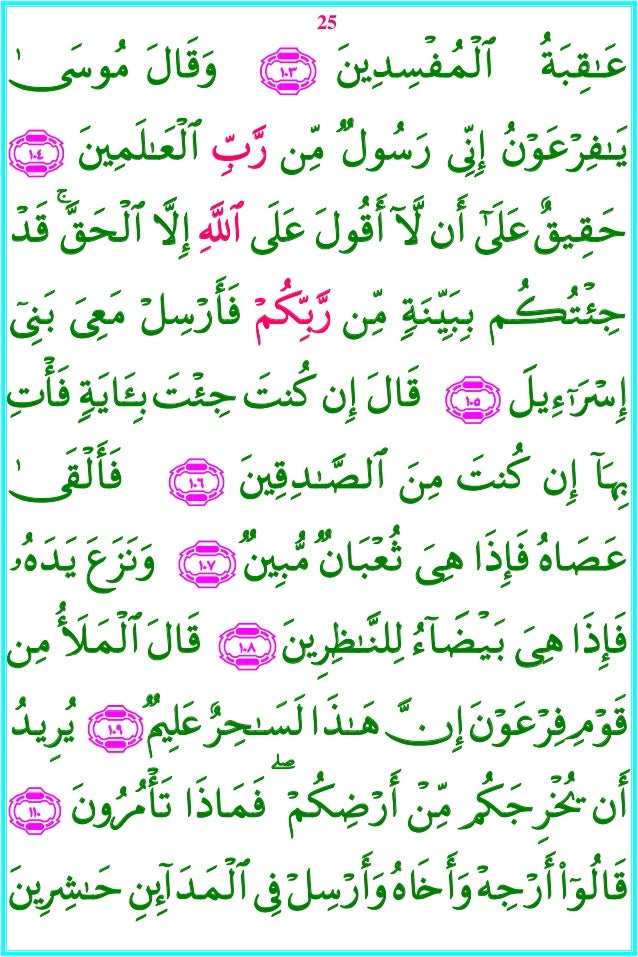 25
عَـٰقِبَةُ ٱلْمُفْسِدِينَ ١٠٣ وَقَالَ مُوسَىٰ
يَـٰفِرْعَوْنُ إِنِّى رَسُولٌ مِّن رَّبِّ ٱلْعَـٰلَمِينَ ١٠٤
حَقِيقٌ عَلَىٰٓ أَن لَّآ أَقُولَ عَلَى ٱللَّهِ إِلَّا ٱلْحَقَّ ۚ قَدْ
جِئْتُكُم بِبَيِّنَةٍ مِّن رَّبِّكُمْ فَأَرْسِلْ مَعِىَ بَنِىٓ
إِسْرَٰٓءِيلَ ١٠٥ قَالَ إِن كُنتَ جِئْتَ بِـَٔايَةٍ فَأْتِ
بِهَآ إِن كُنتَ مِنَ ٱلصَّـٰدِقِينَ ١٠٦ فَأَلْقَىٰ
عَصَاهُ فَإِذَا هِىَ ثُعْبَانٌ مُّبِينٌ ١٠٧ وَنَزَعَ يَدَهُۥ
فَإِذَا هِىَ بَيْضَآءُ لِلنَّـٰظِرِينَ ١٠٨ قَالَ ٱلْمَلَأُ مِن
قَوْمِ فِرْعَوْنَ إِنَّ هَـٰذَا لَسَـٰحِرٌ عَلِيمٌ ١٠٩ يُرِيدُ
أَن يُخْرِجَكُم مِّنْ أَرْضِكُمْ ۖ فَمَاذَا تَأْمُرُونَ ١١٠
قَالُوٓا۟ أَرْجِهْ وَأَخَاهُ وَأَرْسِلْ فِى ٱلْمَدَآئِنِ حَـٰشِرِينَ